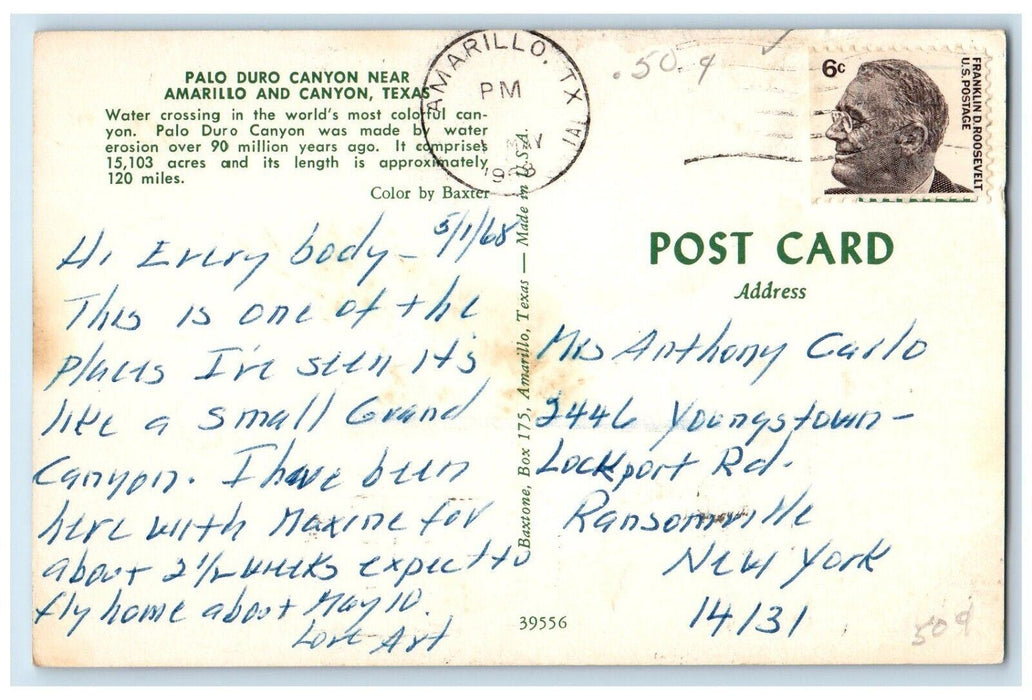 PALO DURO CANYON NEAR
AMARILLO AND CANYON, TEXAS
Water crossing in the world's most colorful can-
yon. Palo Duro Canyon was made by water
erosion over 90 million years ago. It comprises
15,103 acres and its length is approximately
120 miles.
Color by Baxter
5/1/68
Hi Every body –
This is one of the
places I've seen it's
like a small Grand
Canyon. I have been
here with Maxine for
about 2 1/2 weeks expect to
fly home about May 10.
Love Art
AMARILLO, TX
PM
MAY
Baxtone, Box 175, Amarillo, Texas — Made in U.S.A.
39556
.50 ¢
6c
FRANKLIN D. ROOSEVELT
U.S. POSTAGE
POST CARD
Address
Mrs Anthony Carlo
2446 Youngstown –
Lockport Rd.
Ransomville
New York
14131
50¢